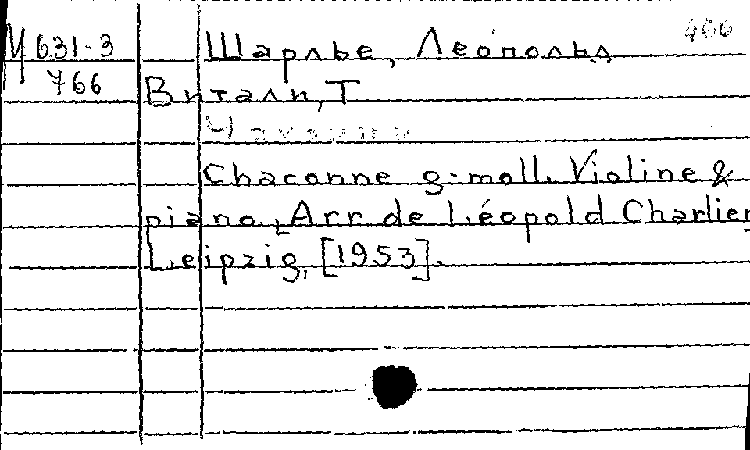 М 631-3
766
Шарлье, Леопольд
466
Витали, Т
Chaconne g-moll. Violine &
piano, Arr de Léopold Charlier
Leipzig, [1953].